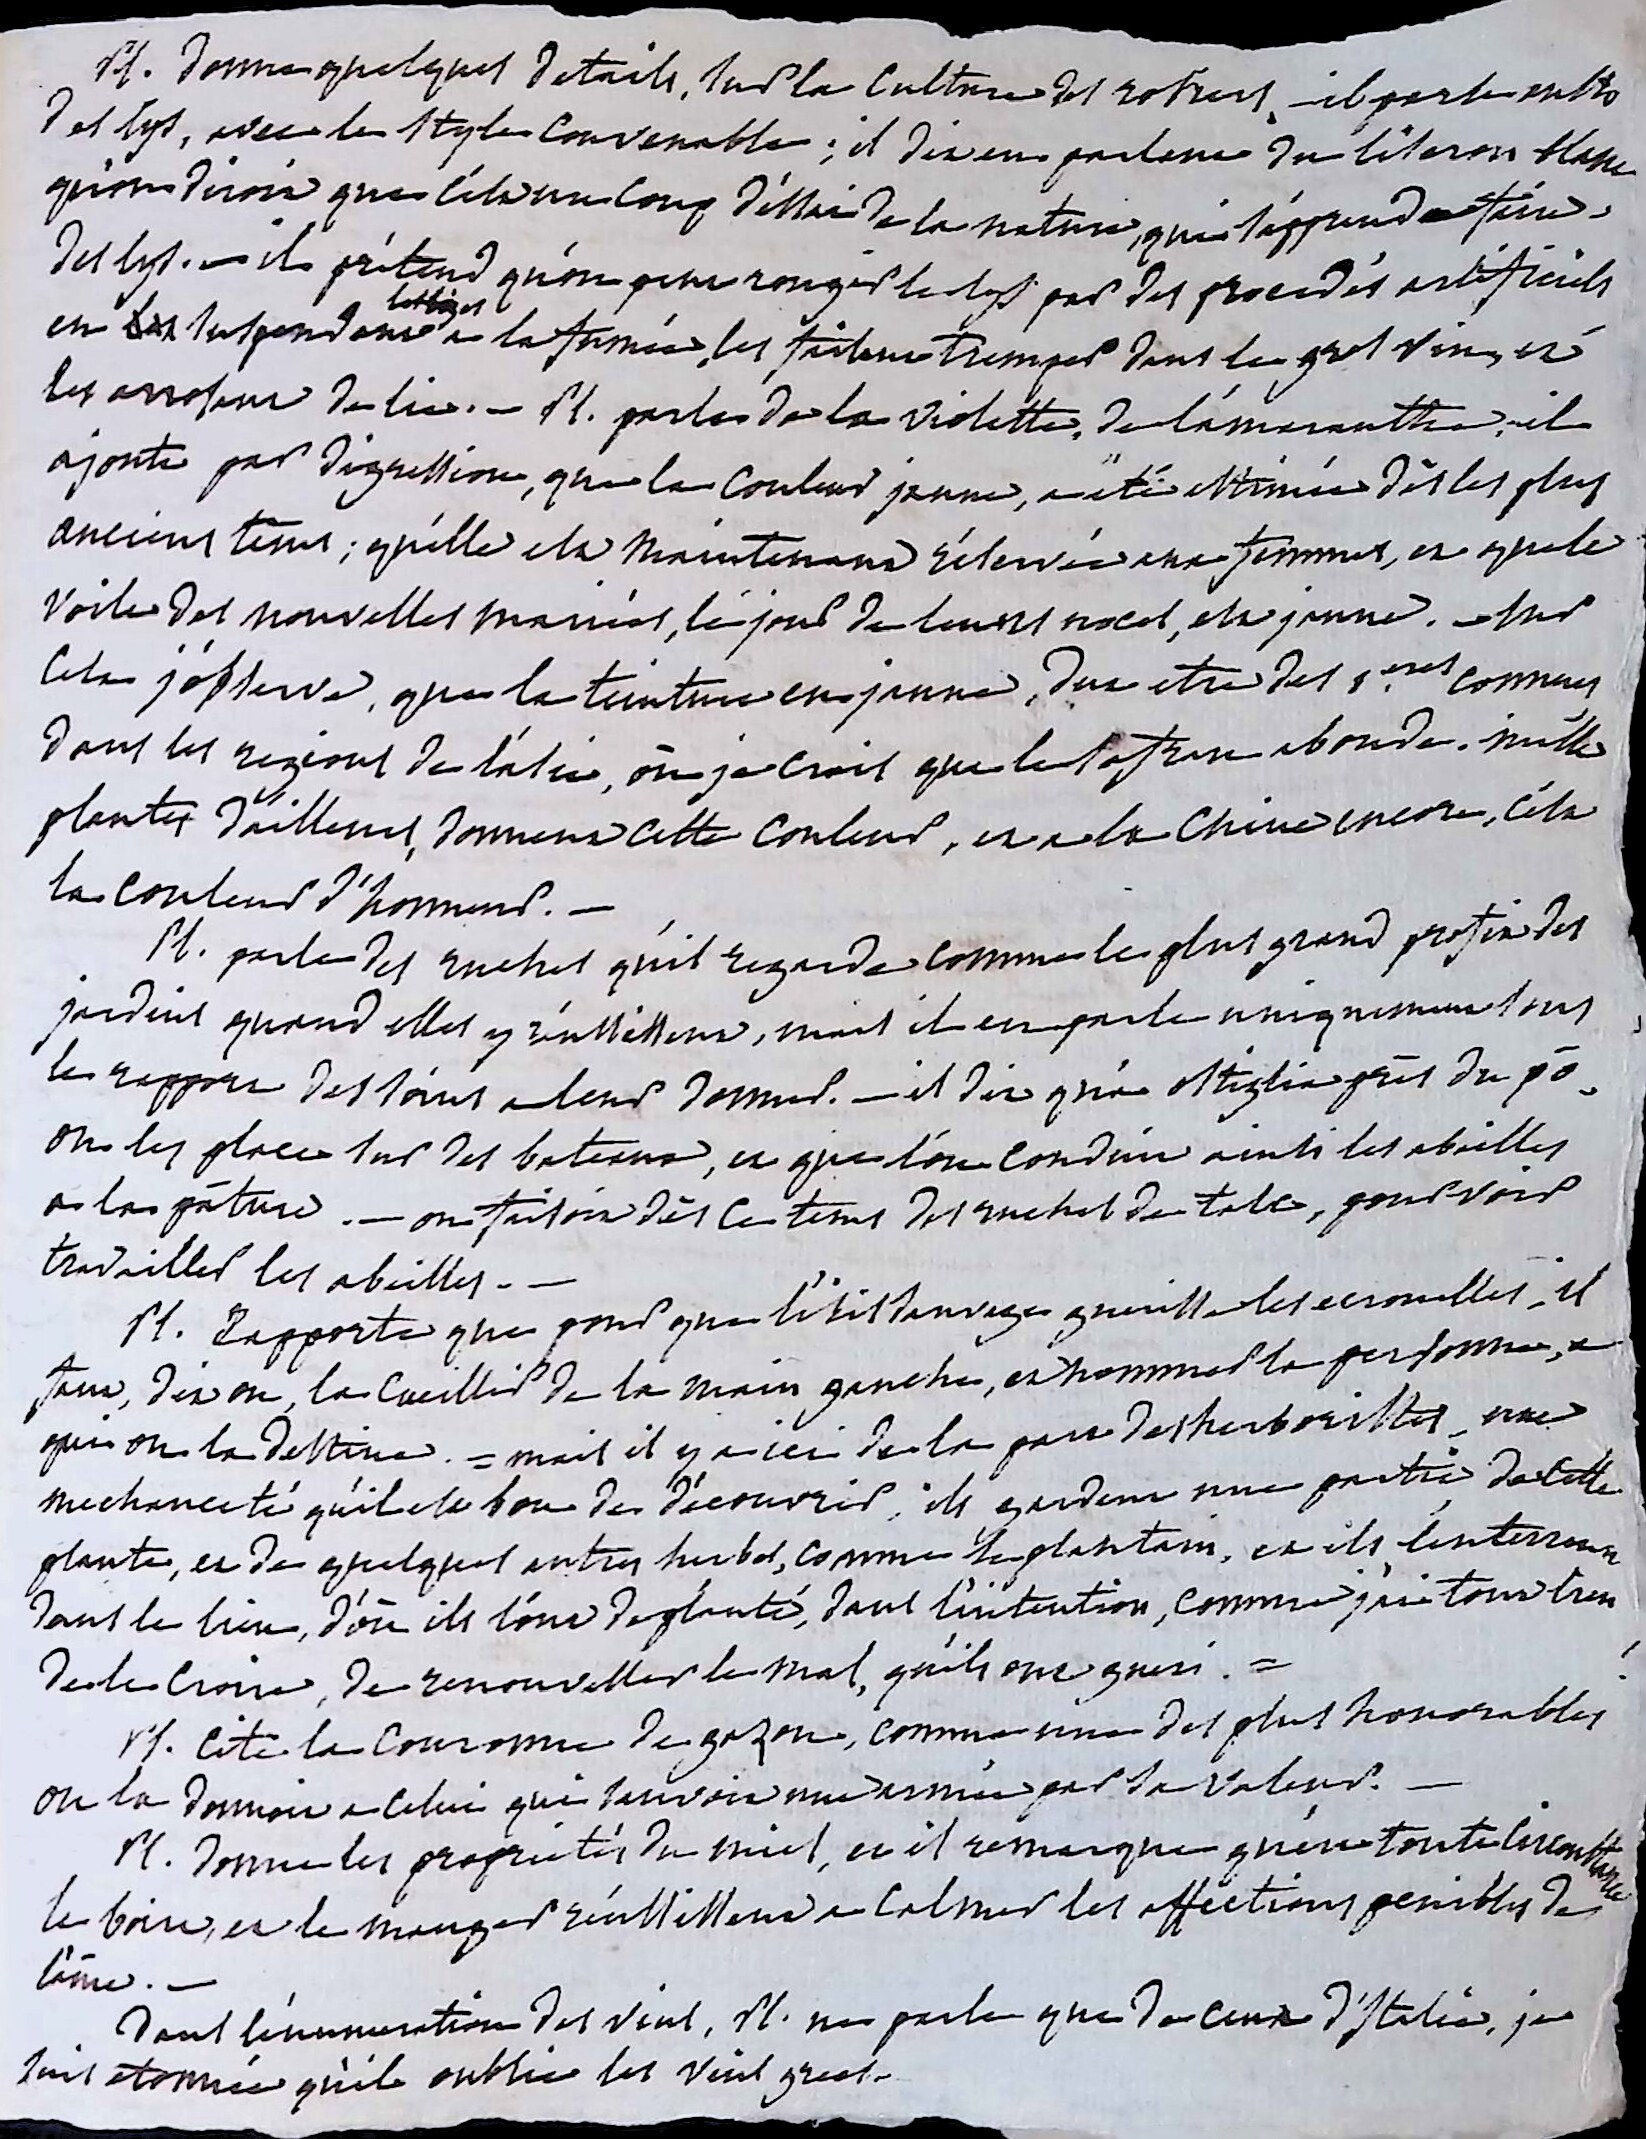 Pl. donne quelques details, sur la culture des rosiers, il parle ensuite
des lys, avec le style convenable ; il dit en parlant du liseron blanc
qu'on diroit que c'est un coup d'éssai de la nature, qui s'apprend a faire
des lys. — il prétend qu'on peut rougir le lys par des procedés artificiels
en les suspendant les tiges a la fumée, les faisant tremper dans le gros vin, et
les arrosant de lie. — Pl. parle de la violette, de l'amaranthe, il
ajoute par digression, que la couleur jaune, a été estimée dès les plus
anciens tems ; qu'élle est maintenant réservée aux femmes, et que le
voile des nouvelles mariées, le jour de leurs noces, est jaune. — sur
cela j'observe, que la teinture en jaune, dut etre des 1.eres connues
dans les regions de l'asie, où je crois que le safran abonde. mille
plantes d'ailleurs, donnent cette couleur, et a la Chine encore, c'est
la couleur d'honneur. —
Pl. parle des ruches qu'il regarde comme le plus grand profit des
jardins quand elles y réussissent, mais il en parle uniquement sous
le rapport des soins a leur donner. — il dit qu'a ostiglia près du pô,
on les place sur des bateaux, et que l'on conduit ainsi les abeilles
a la pâture. — on faisoit dès ce tems des ruches de talc, pour voir
travailler les abeilles. —
Pl. rapporte que pour que l'iris sauvage guerisse les ecrouelles, il
faut, dit on, la cueillir de la main gauche, et nommer la personne, a
qui on la destine. = mais il y a ici de la part des herboristes, une
mechanceté qu'il est bon de découvrir, ils gardent une partie de cette
plante, et de quelques autres herbes, comme le plantain, et ils l'enterrent
dans le lieu, d'où ils l'ont deplanté, dans l'intention, comme j'ai tout lieu
de le croire, de renouveller le mal, qu'ils ont gueri. =
Pl. cite la couronne de gazon, comme une des plus honorables
on la donnoit a celui qui sauvoit une armée par sa valeur. —
Pl. donne les proprietés du miel, et il remarque qu'en toute circonstance
le boire, et le manger réussissent a calmer les affections penibles de
l'âme. —
Dans l'énumeration des vins, Pl. ne parle que de ceux d'Italie, je
suis etonnée qu'il oublie les vins grecs.